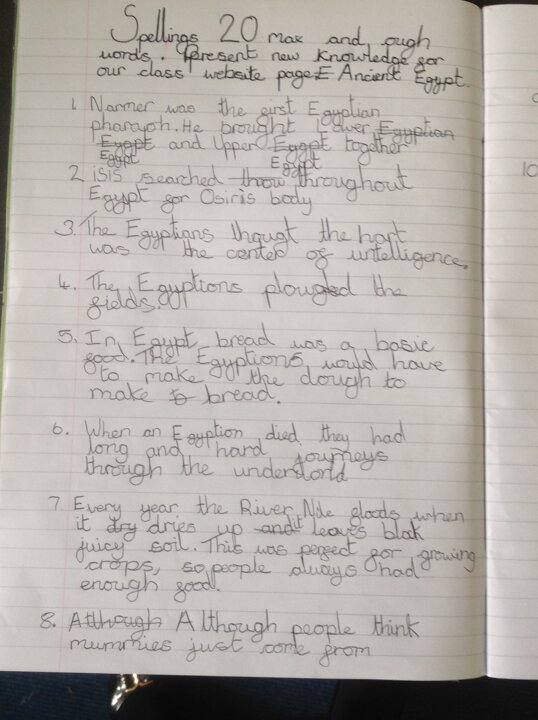 Spellings 20 max and ough
words. Present new knowledge for
our class website page - Ancient Egypt.
1. Narmer was the first Egyptian
pharaoh. He brought Lower Egyptian
Egypt and Upper Egypt together
Egypt Egypt
2 isis searched throw throughout
Egypt for Osiris body
3. The Egyptians thougt the hart
was the center of intelligence.
4. The Egyptions plouged the
fields.
5. In Egypt, bread was a basic
food. The Egyptions would have
to make the dough to
make bread.
6. When an Egyption died they had
long and hard journeys
through the underorld
7. Every year the River Nile floods when
it dry dries up and it leaves blak
juicy soil. This was perfect for growing
crops, so people always had
enough food.
8. Although Although people think
mummies just come from
10